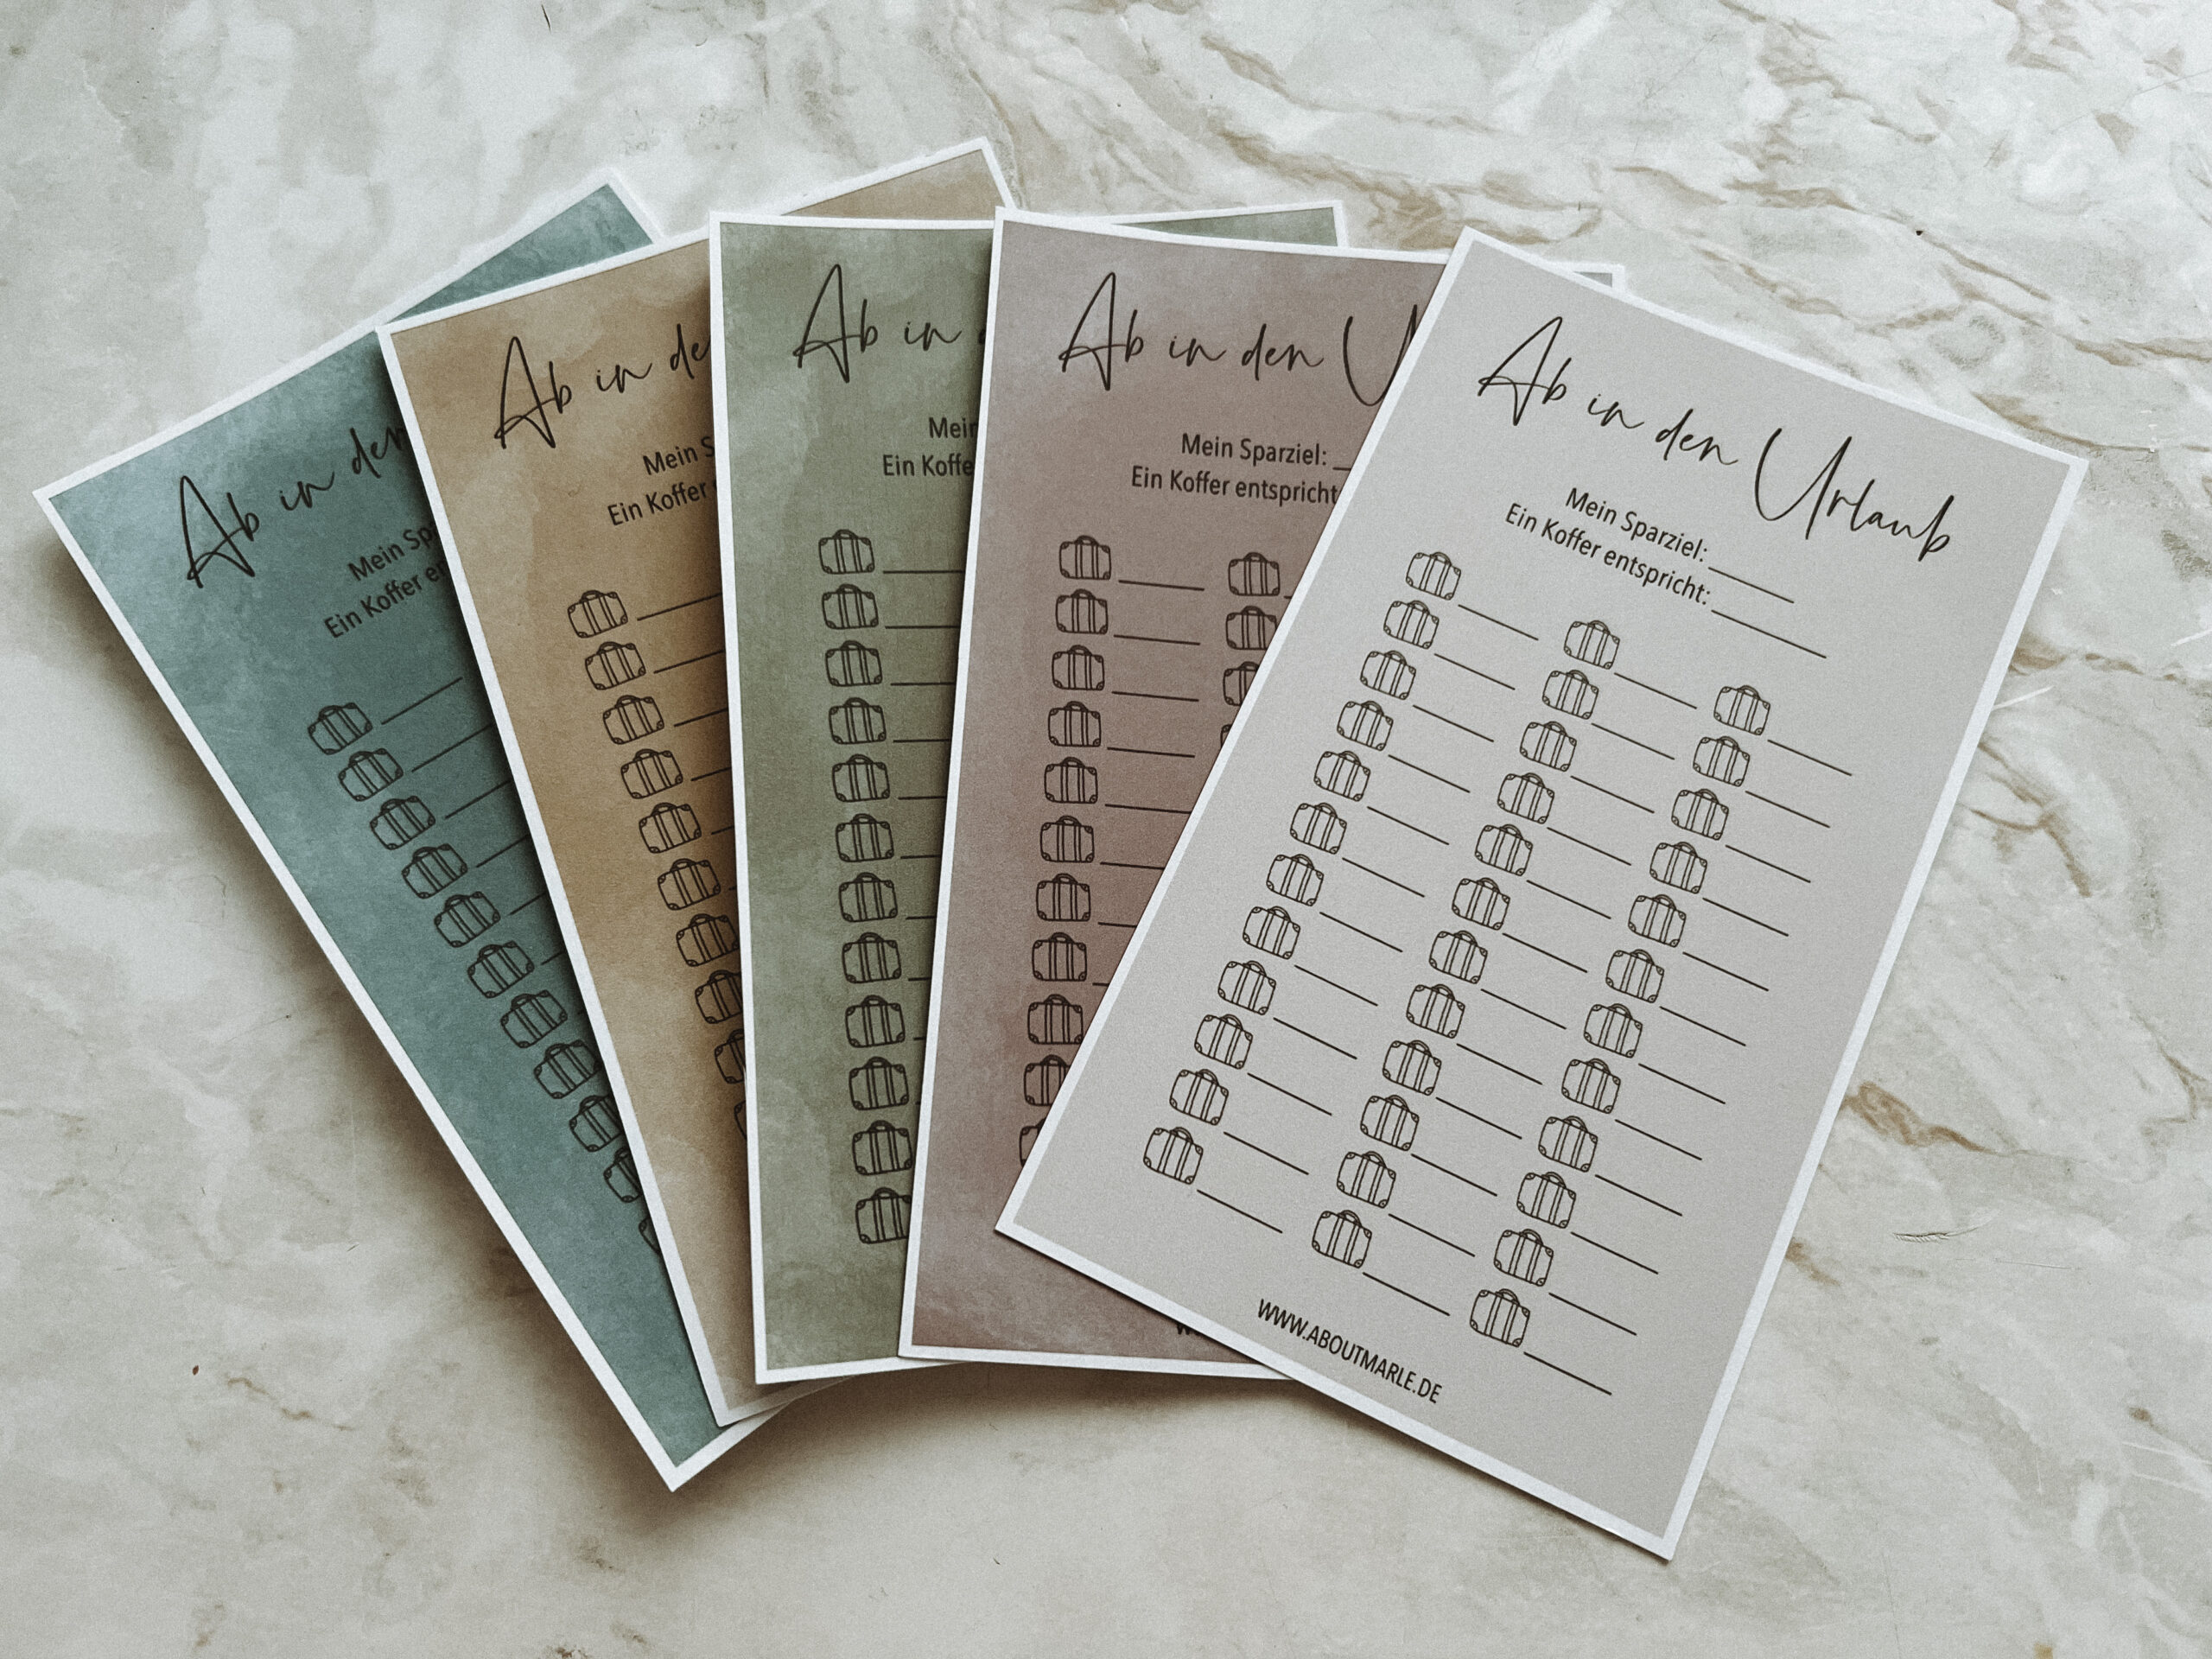 Ab in
Mein
Ein Koffer
Ab in
Mein
Ein Koffer
Ab in
Ein
Ab in den
Mein Sparziel:
Ein Koffer entspricht
Ab in den Urlaub
Mein Sparziel:
Ein Koffer entspricht:
WWW.ABOUTMARLE.DE